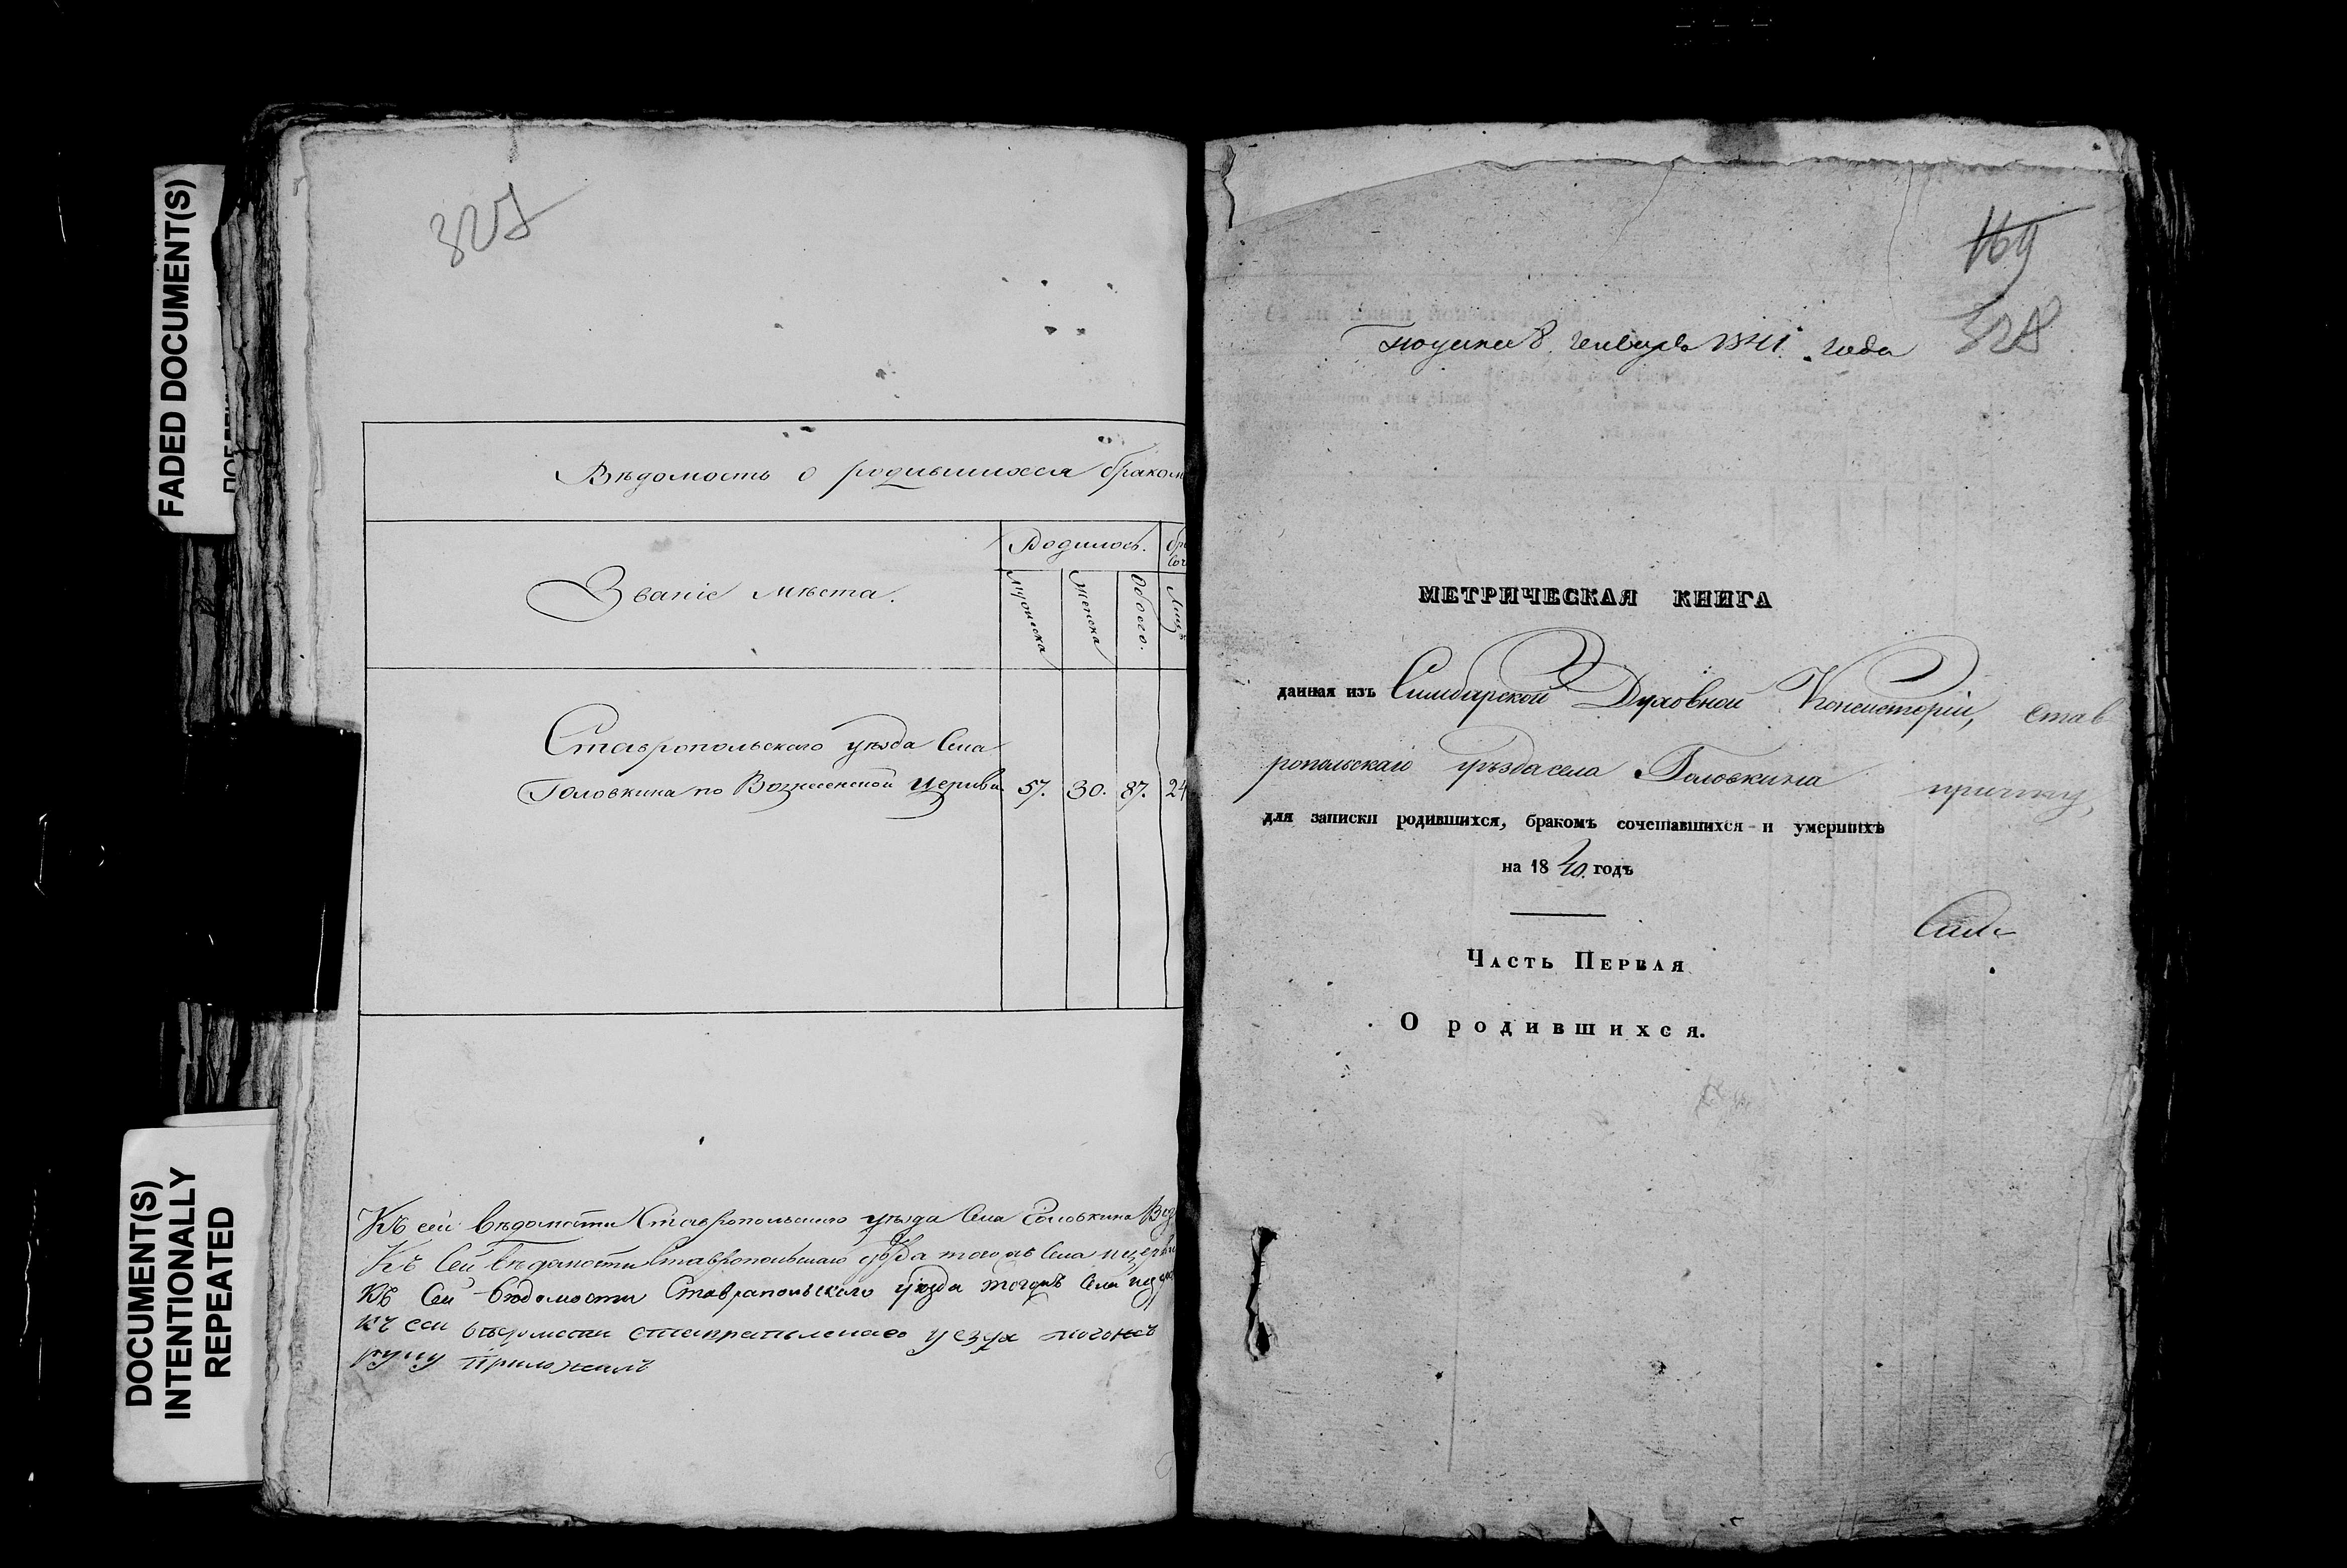 FADED DOCUMENT(S)
DOCUMENT(S)
INTENTIONALLY
REPEATED
327
Вѣдомость о родившихся браком
Званіе мѣста.
Родилось.
Мужеска
Женска
Обоего.
Ставропольскаго уѣзда Села
Головкина по Вознесенской церкви 57. 30. 87. 24
Къ сей вѣдомости Ставропольскаго уѣзда Села Головкина
Къ Сей вѣдомости Ставропольскаго уѣзда того жъ Села
Къ Сей вѣдомости Ставрапольскаго уѣзда тогожъ Села
къ сей ведомости уезда тогожъ
руку приложилъ
169
328
8 генваря 1841. года
МЕТРИЧЕСКАЯ КНИГА
данная изъ Симбирской Духовной Консисторіи, став
ропольскаго уѣзда села Головкина причту,
для записки родившихся, бракомъ сочетавшихся и умершихъ
на 1840. годъ
Часть Первая
О родившихся.